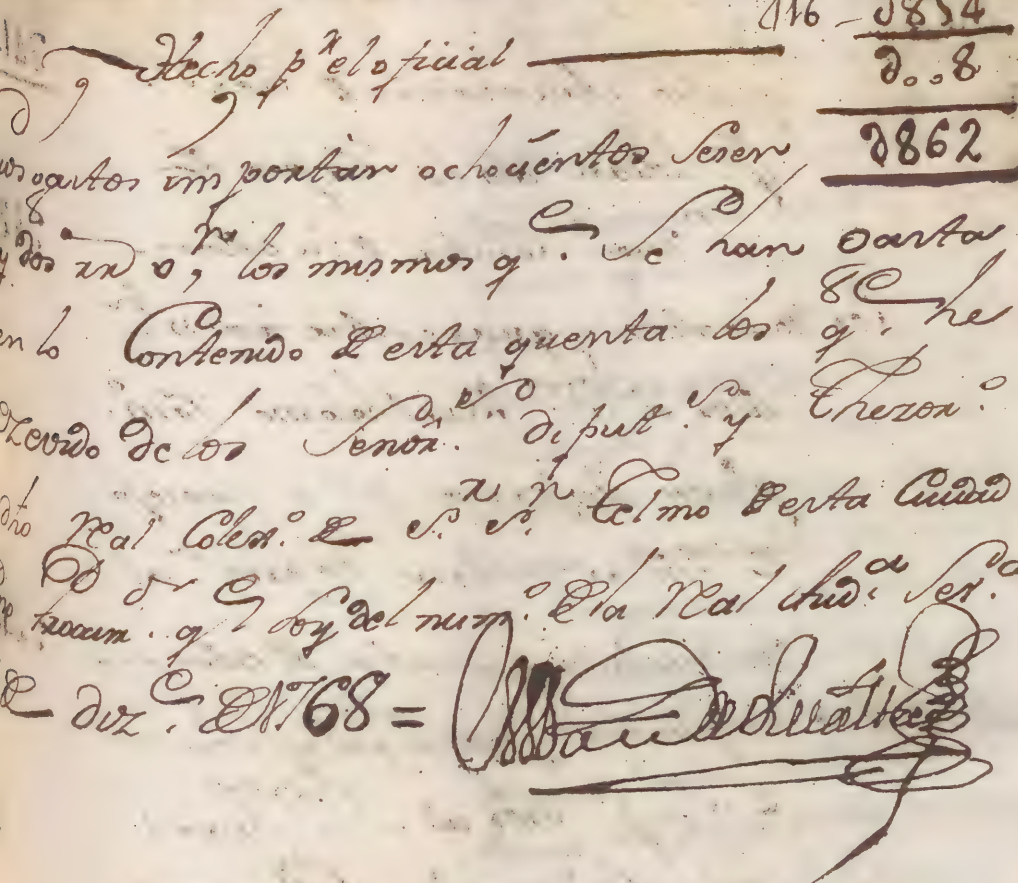 116 - ∂854
Hecho pr. el oficial ∂..8
∂862
gastos importan ochocientos sesen
y dos rrs. vn, los mismos q.e se han gasta
en lo Contenido de esta quenta los q.e he
rrevido de los Senor.s Diput.s y Thezor.o
dho Real Coleg.o de S.r S.n Telmo de esta Ciudad
q.e soy del num.o de la Real Aud.a Sev.a
de diz.e de 1768 =